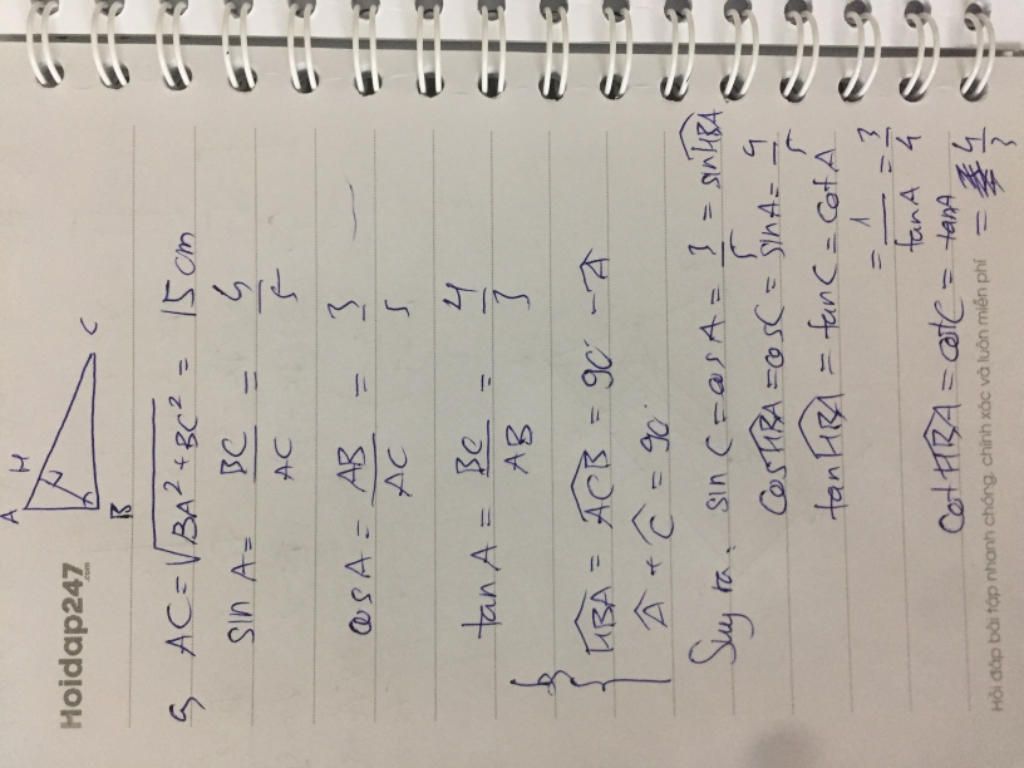 Hoidap247
.com
A
H
B
C
a) AC = √(BA² + BC²) = 15 cm
sin A = BC/AC = 4/5
cos A = AB/AC = 3/5
tan A = BC/AB = 4/3
b) { \widehat{HBA} = \widehat{ACB} = 90° - Â
 + Ĉ = 90°
Suy ra: sin C = cos A = 3/5 = sin \widehat{HBA}
cos \widehat{HBA} = cos C = sin A = 4/5
tan \widehat{HBA} = tan C = cot A
= 1/tan A = 3/4
cot \widehat{HBA} = cot C = tan A
= 4/3
Hỏi đáp bài tập nhanh chóng, chính xác và luôn miễn phí